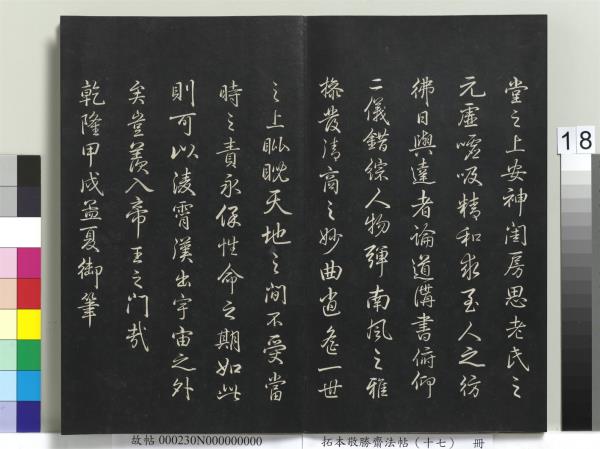 堂之上安神闺房思老氏之
元虛嘘吸精和求至人之彷
彿日與達者論道講書俯仰
二儀錯綜人物彈南風之雅
操發清商之妙曲逍遙一世
之上睥睨天地之間不受當
時之責永保性命之期如此
則可以凌霄漢出宇宙之外
矣豈羨入帝王之門哉
乾隆甲戌孟夏御筆
18
故帖 000230N000000000
拓本敬勝齋法帖（十七） 冊